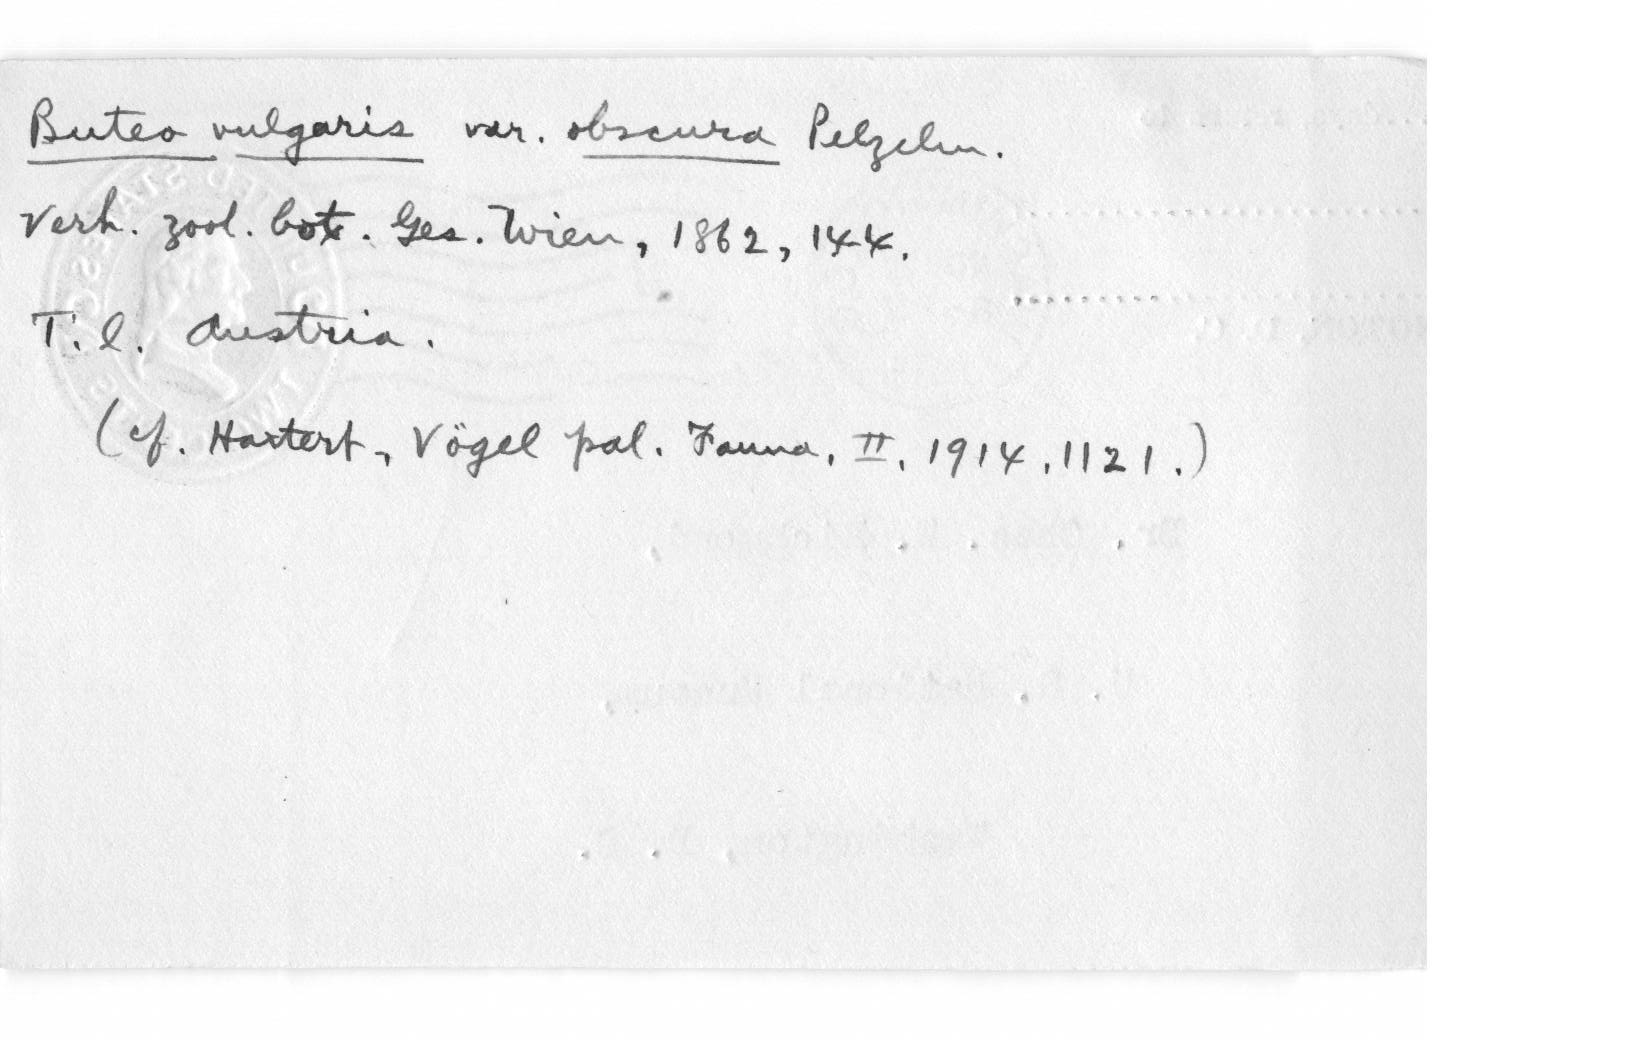 Buteo vulgaris var. obscura Pelzeln.
Verh. zool. bot. Ges. Wien, 1862, 144.
T. l. Austria.
(cf. Hartert, Vögel pal. Fauna, II, 1914, 1121.)